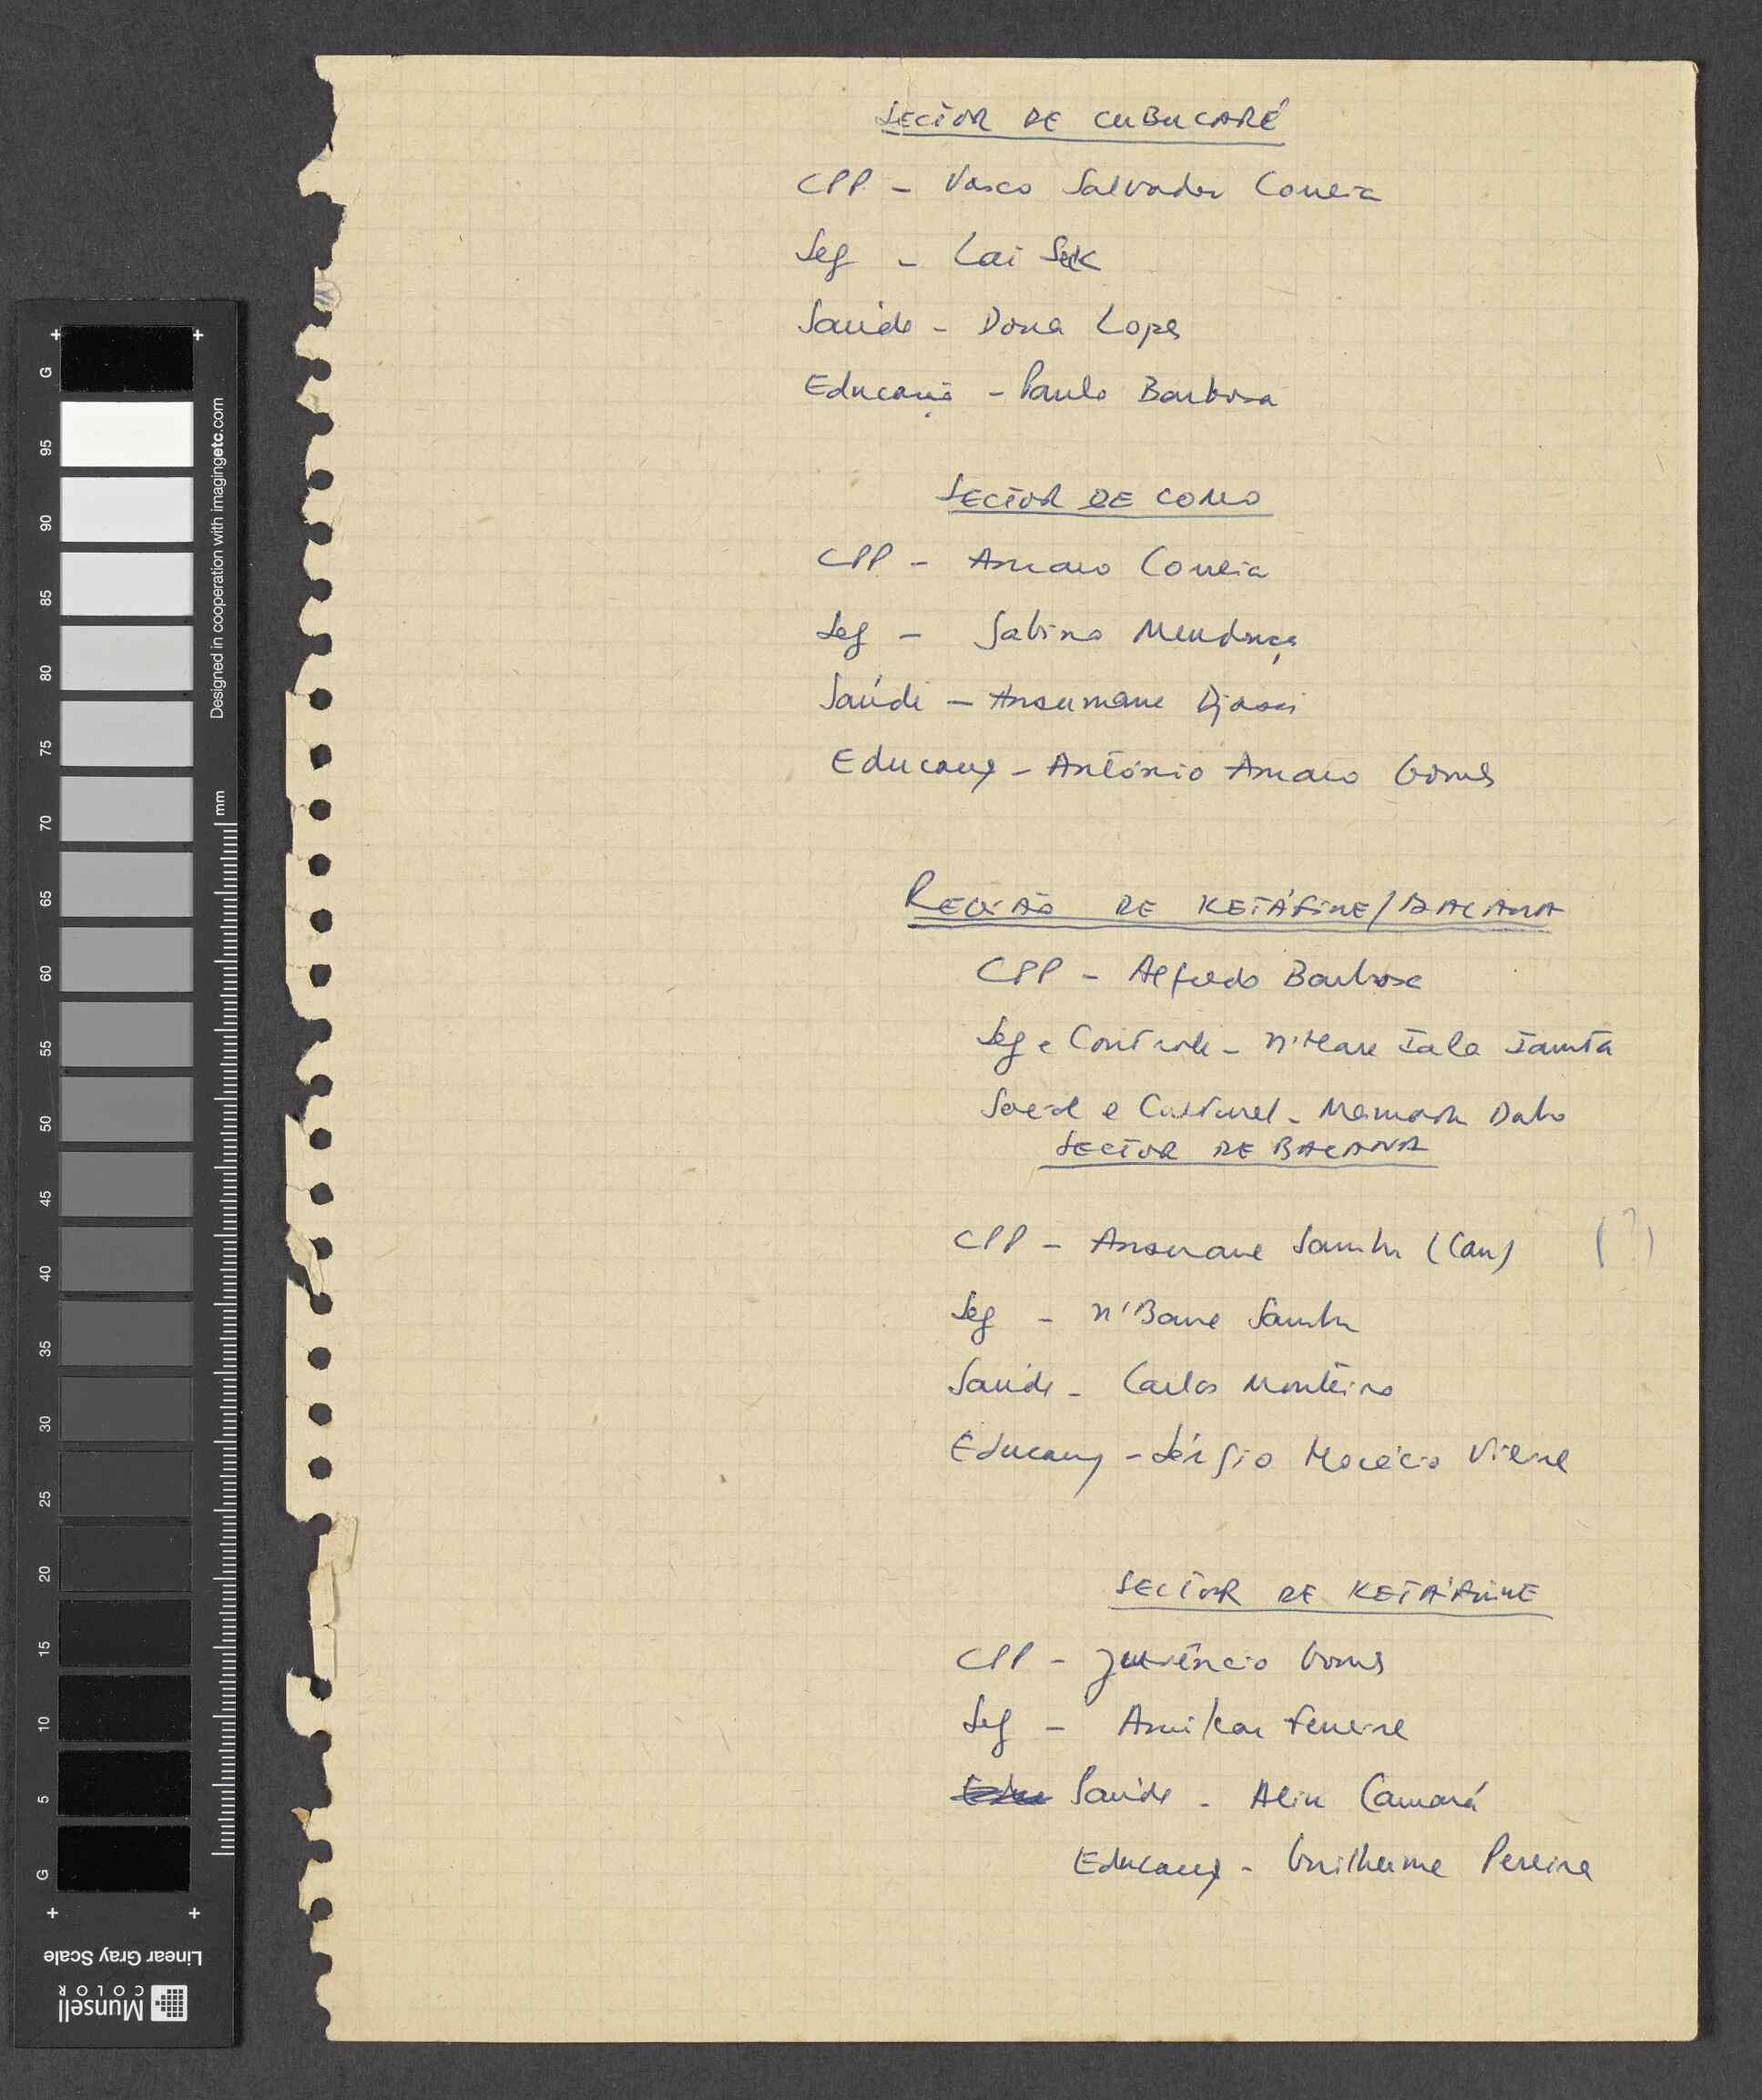 SECTOR DE CUBUCARÉ
CPP - Vasco Salvador Correia
Seg - Lai Seck
Saúde - Dona Lopes
Educação - Paulo Barbosa
SECTOR DE COMO
CPP - Amaro Correia
Seg - Sabino Mendonça
Saúde - Ansumane Djassi
Educação - António Amaro Gomes
REGIÃO DE KETÁFINE/BALANA
CPP - Alfredo Barbosa
Seg e Controle - Iala
Social e Cultural - Mamadu Dabo
SECTOR DE BALANA
CPP - Ansumane Sambu (Can) (?)
Seg - N'Bane Sambu
Saúde - Carlos Monteiro
Educação - Sérgio Vieira
SECTOR DE KETÁFINE
CPP - Juvêncio Gomes
Seg - Amilcar Ferreira
Saúde - Aliu Camará
Educação - Guilherme Pereira
G
95
90
85
80
75
70
65
60
55
50
45
40
35
30
25
20
15
10
5
G
Designed in cooperation with imagingetc.com
mm
Linear Gray Scale
Munsell
COLOR